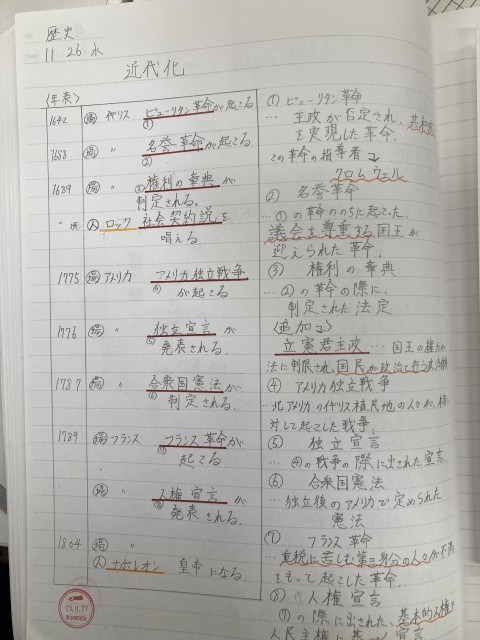 歴史
11.26.水
近代化
〈年表〉
1642 場 イギリス ピューリタン革命が起こる
①
1688 場 〃 名誉革命が起こる
②
1689 場 〃 ③権利の章典が
制定される。
〃頃 人 ロック 社会契約説を
唱える
1775 場 アメリカ アメリカ独立戦争
④ が起こる
1776 場 〃 独立宣言が
⑤発表される。
1787 場 〃 合衆国憲法が
⑥制定される。
1789 場 フランス フランス革命が
⑦ 起こる
場 〃 人権宣言が
⑧発表される。
1804 場 〃
人 ナポレオン 皇帝になる。
25.11.27
① ピューリタン革命
… 王政が否定され、共和政
を実現した革命。
この革命の指導者
クロムウェル
② 名誉革命
… ①の革命ののちに起こった、
議会を尊重する国王が
迎えられた革命。
③ 権利の章典
… ②の革命の際に、
制定された法定
〈追加〉
立憲君主政 … 国王の権力が
法に制限され、国民が政治を行う
④ アメリカ独立戦争
… 北アメリカのイギリス植民地の人々が、
対して起こした戦争。
⑤ 独立宣言
… ④の戦争の際に出された宣言
⑥ 合衆国憲法
… 独立後のアメリカで定められた
憲法
⑦ フランス革命
… 重税に苦しむ第三身分の人々が不満
をもって起こした革命。
⑧ 人権宣言
… ⑦の際に出された、基本的人権や
人民主権